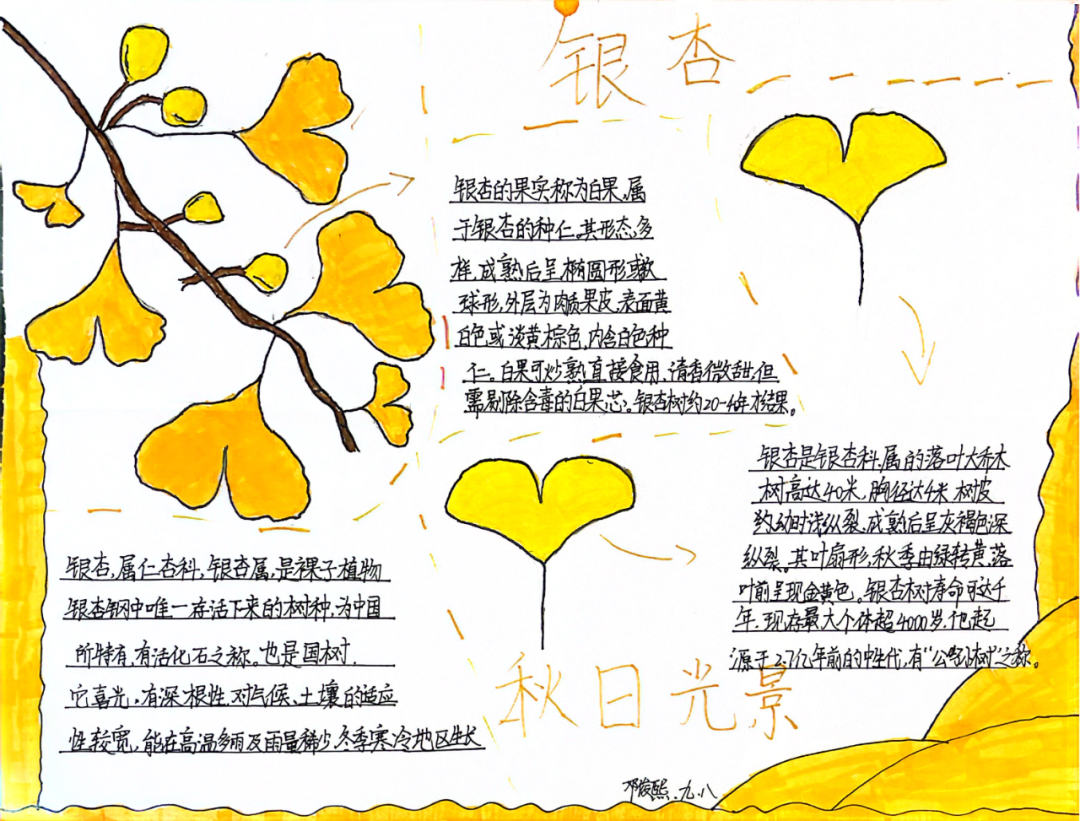 银杏
银杏的果实称为白果,属
于银杏的种仁。其形态多
样,成熟后呈椭圆形或
球形,外层为肉质果皮,表面黄
白色或淡黄棕色,内含白色种
仁。白果可炒熟直接食用,清香微甜,但
需剔除含毒的白果芯。银杏树约20-40年才结果。
银杏是银杏科、属的落叶大乔木
树高达40米,胸径达4米 树皮
幼时浅纵裂,成熟后呈灰褐色深
纵裂。其叶扇形,秋季由绿转黄,落
叶前呈现金黄色。银杏树寿命可达千
年,现存最大个体超4000岁,它起
源于2.7亿年前的中生代,有“公孙树”之称。
银杏,属仁杏科,银杏属,是裸子植物
银杏钢中唯一存活下来的树种,为中国
所特有,有活化石之称。也是国树.
它喜光,有深根性,对气候、土壤的适应
性较宽,能在高温多雨及雨量稀少、冬季寒冷地区生长
秋日光景
邓俊熙.九.八